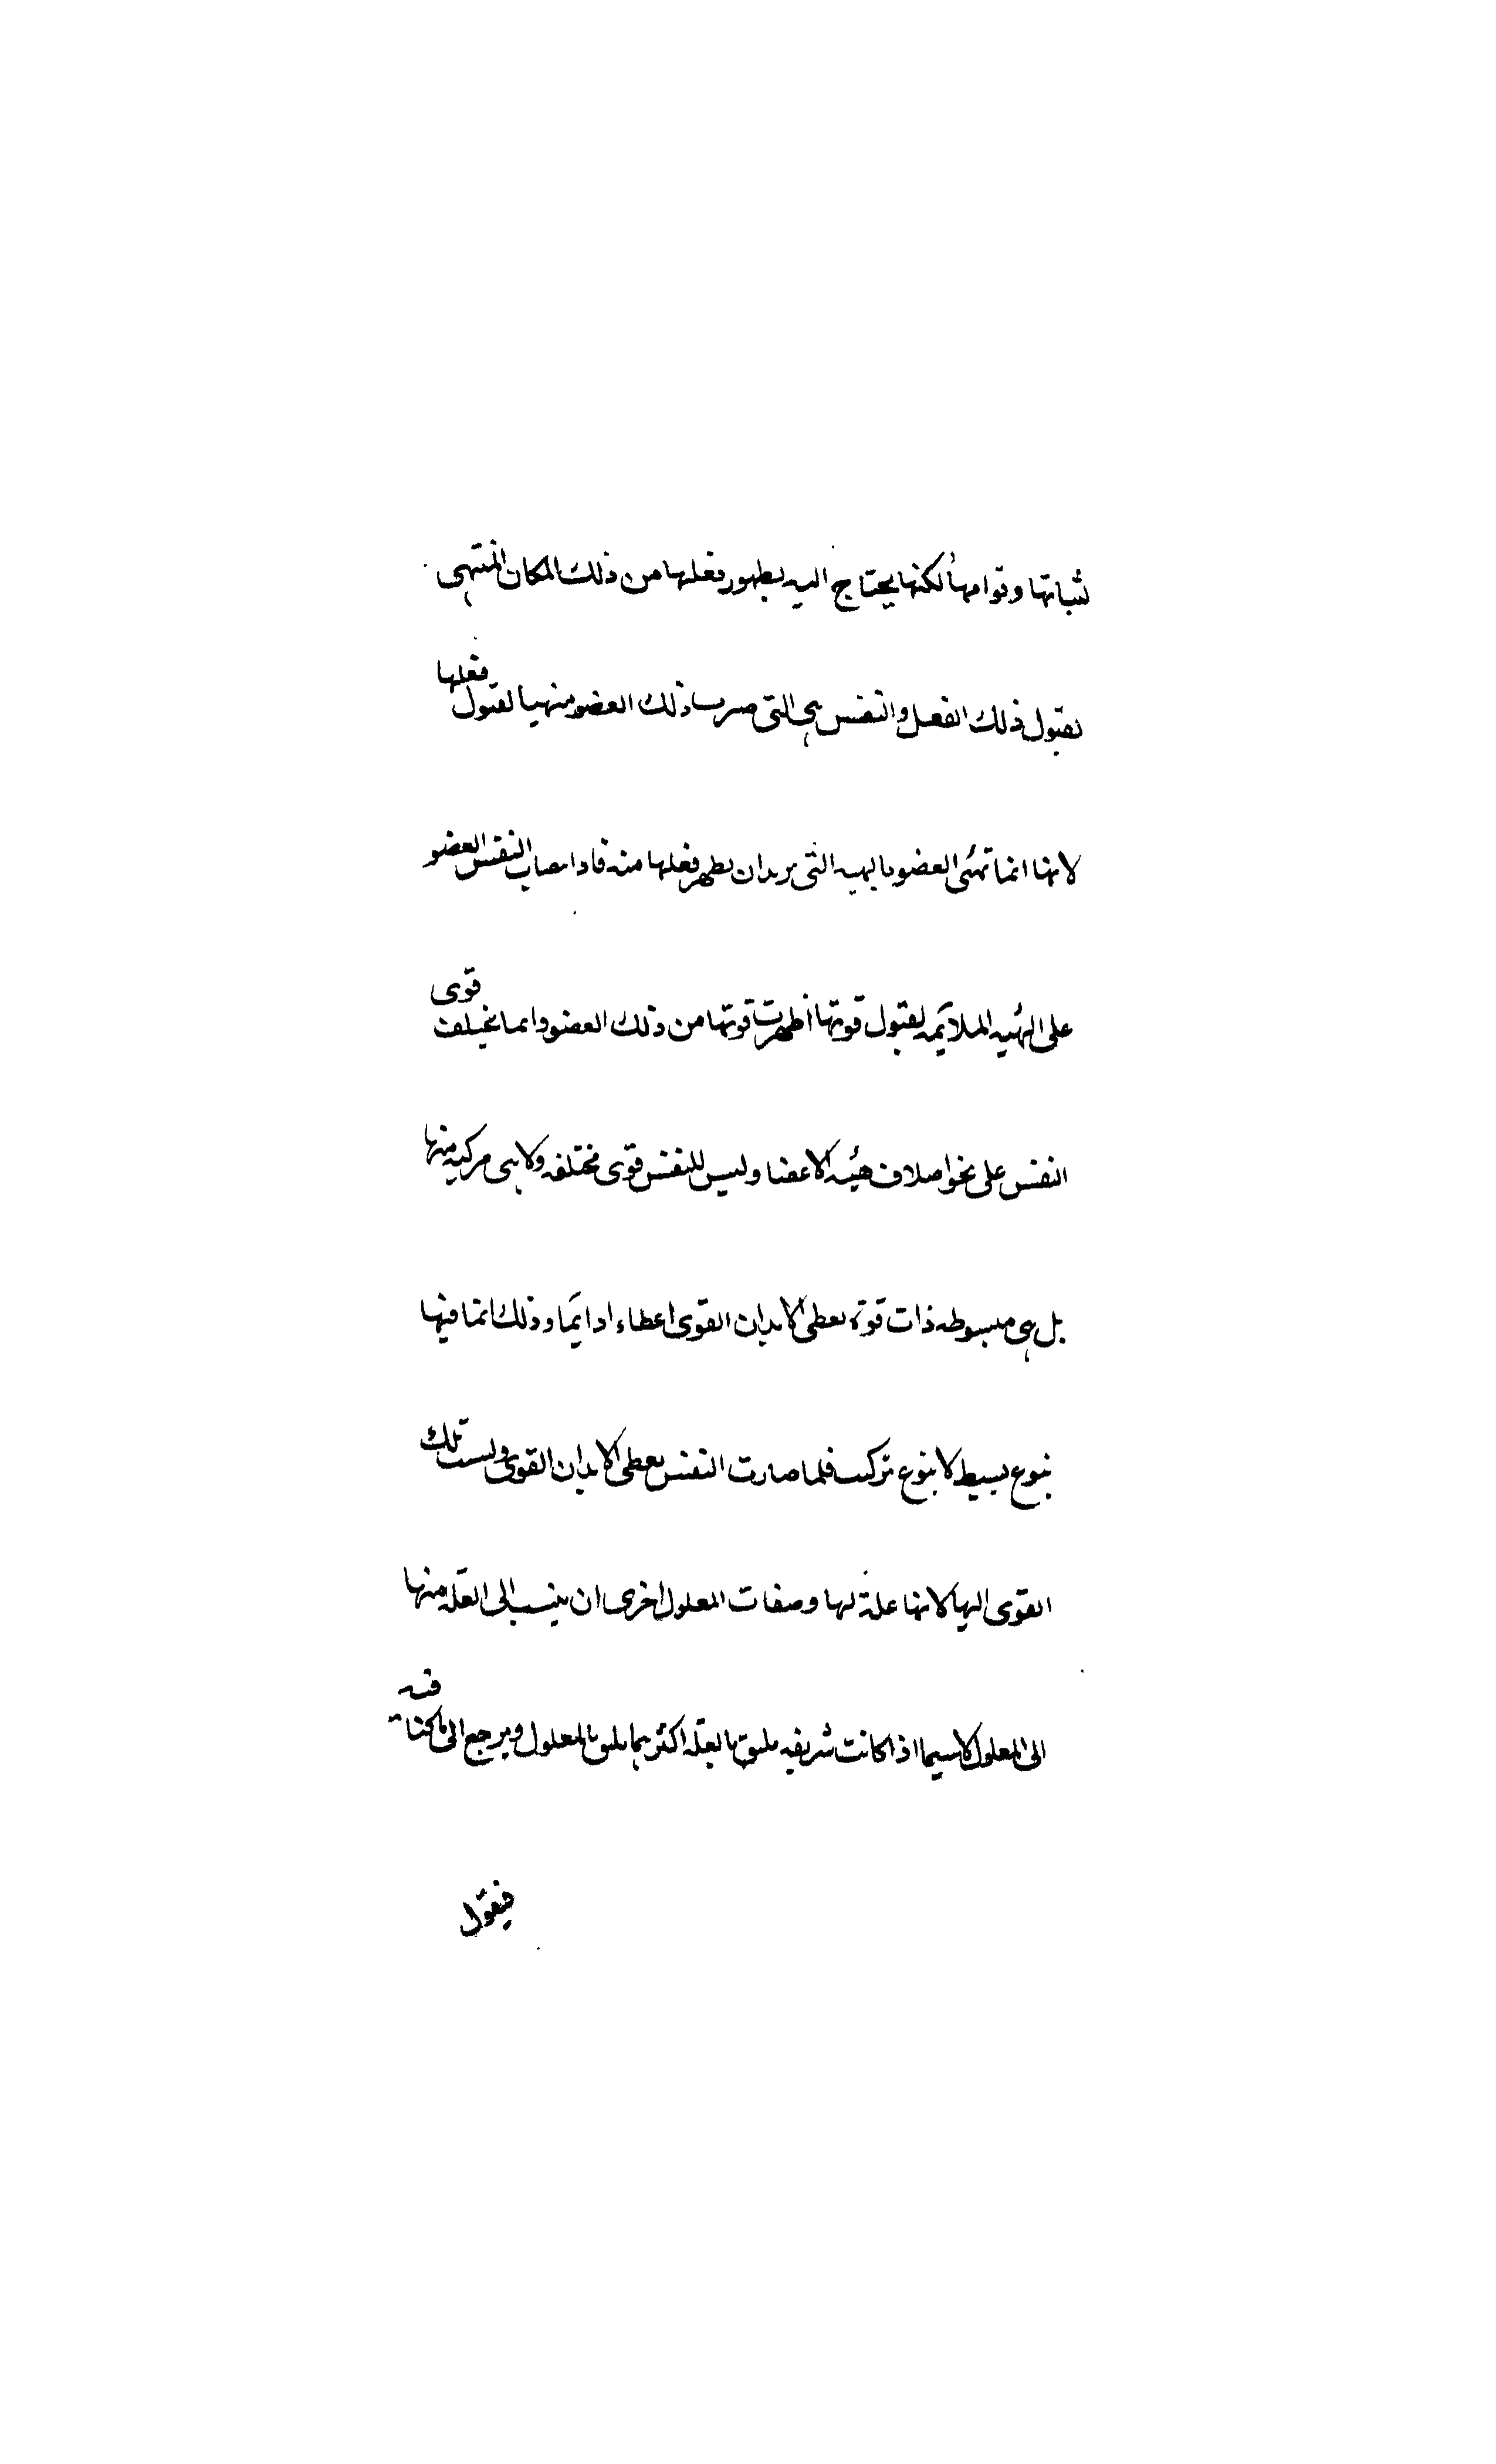 لثباتها وقوامها لكنها يحتاج اليه لظهور فعلها من ذلك المكان المتهيى
لقبول ذلك الفعل والنفس هى التى صيرت ذلك العضو متهيا لقبول فعلها
لانها انما تهئى العضو بالهيه التى يريد ان يظهر فعلها منه فاذا النفس العضو
على الهئيه الملائمه لقبول قوتها اظهرت قوتها من ذلك العضو وانما يختلف قوى
النفس على نحو اختلاف هيئه الاعضا وليس للنفس قوى مختلفه ولا هى مركبه منها
بل هى مبسوطه ذات قوة يعطى الابدان القوى اعطاء ادايما وذلك انما فيها
بنوع بسيط لا بنوع تركيب فلما صارت النفس يعطى الابدان القوى ولست تلك
القوى اليها لانها علة لها وصفات المعلول احرى ان ينسب الى العله منها
الى المعلول لاسيما اذا كانت شريفه يليق بالعله اكثر مما يليق بالمعلول ويرجع الى ماكنا فيه
فيقول